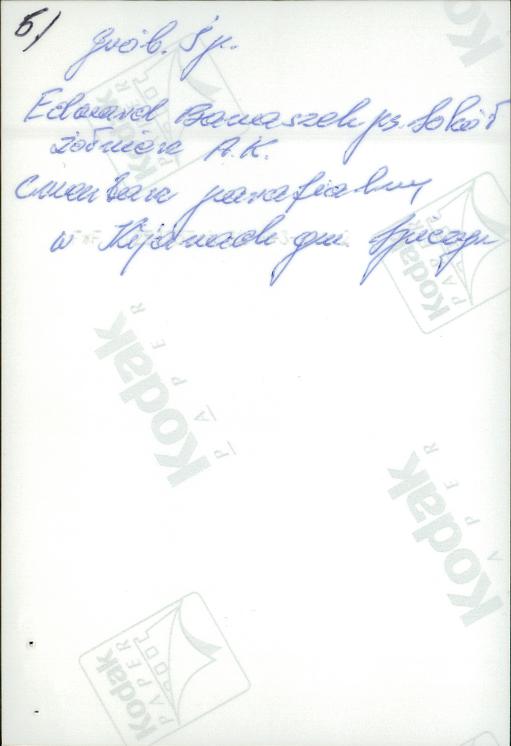 5/
Grób. Śp.
Edward Banaszek ps. Sokół
żołnierz A.K.
Cmentarz parafialny
w Kijanach gm Spiczyn
Kodak
PAPER
Kodak
PAPER
Kodak
PAPER
Kodak
PAPER
Kodak
PAPER